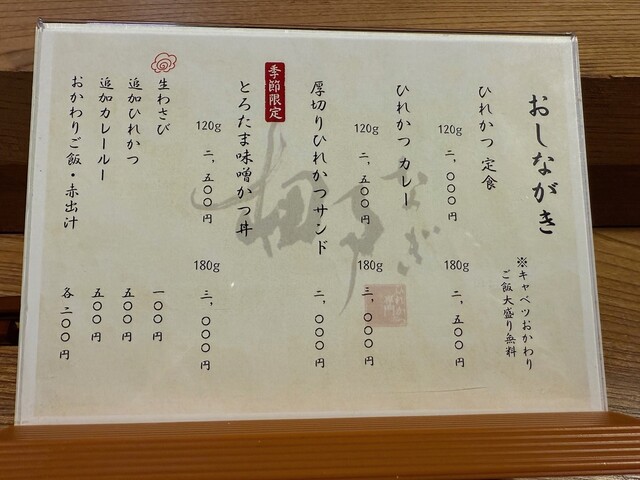 おしながき
※キャベツおかわり
ご飯大盛り無料
ひれかつ 定食
120g 二、〇〇〇円
180g 二、五〇〇円
ひれかつ カレー
120g 二、五〇〇円
180g 三、〇〇〇円
厚切りひれかつサンド
二、〇〇〇円
季節限定
とろたま味噌かつ丼
120g 二、五〇〇円
180g 三、〇〇〇円
生わさび
一〇〇円
追加ひれかつ
五〇〇円
追加カレールー
五〇〇円
おかわりご飯・赤出汁
各二〇〇円